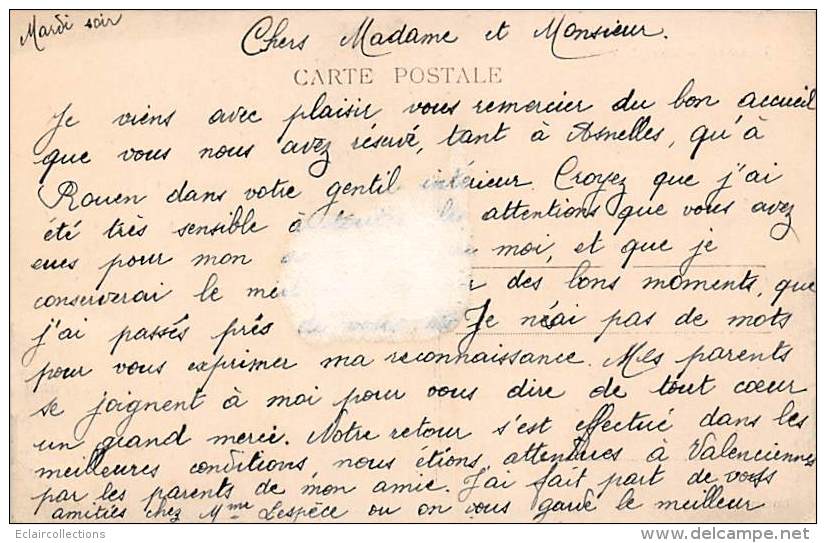 Mardi soir
Chers Madame et Monsieur.
CARTE POSTALE
Je viens avec plaisir vous remercier du bon accueil
que vous nous avez réservé, tant à Asnelles, qu'à
Rouen dans votre gentil intérieur. Croyez que j'ai
été très sensible à toutes les attentions que vous avez
eues pour mon moi, et que je
conserverai le des bons moments, que
j'ai passés près de vous. Je n'ai pas de mots
pour vous exprimer ma reconnaissance. Mes parents
se joignent à moi pour vous dire de tout cœur
un grand merci. Notre retour s'est effectué dans les
meilleures conditions, nous étions attendues à Valenciennes
par les parents de mon amie. J'ai fait part de vos
amitiés chez Mme Lespèce ou on vous garde le meilleur
Eclaircollections